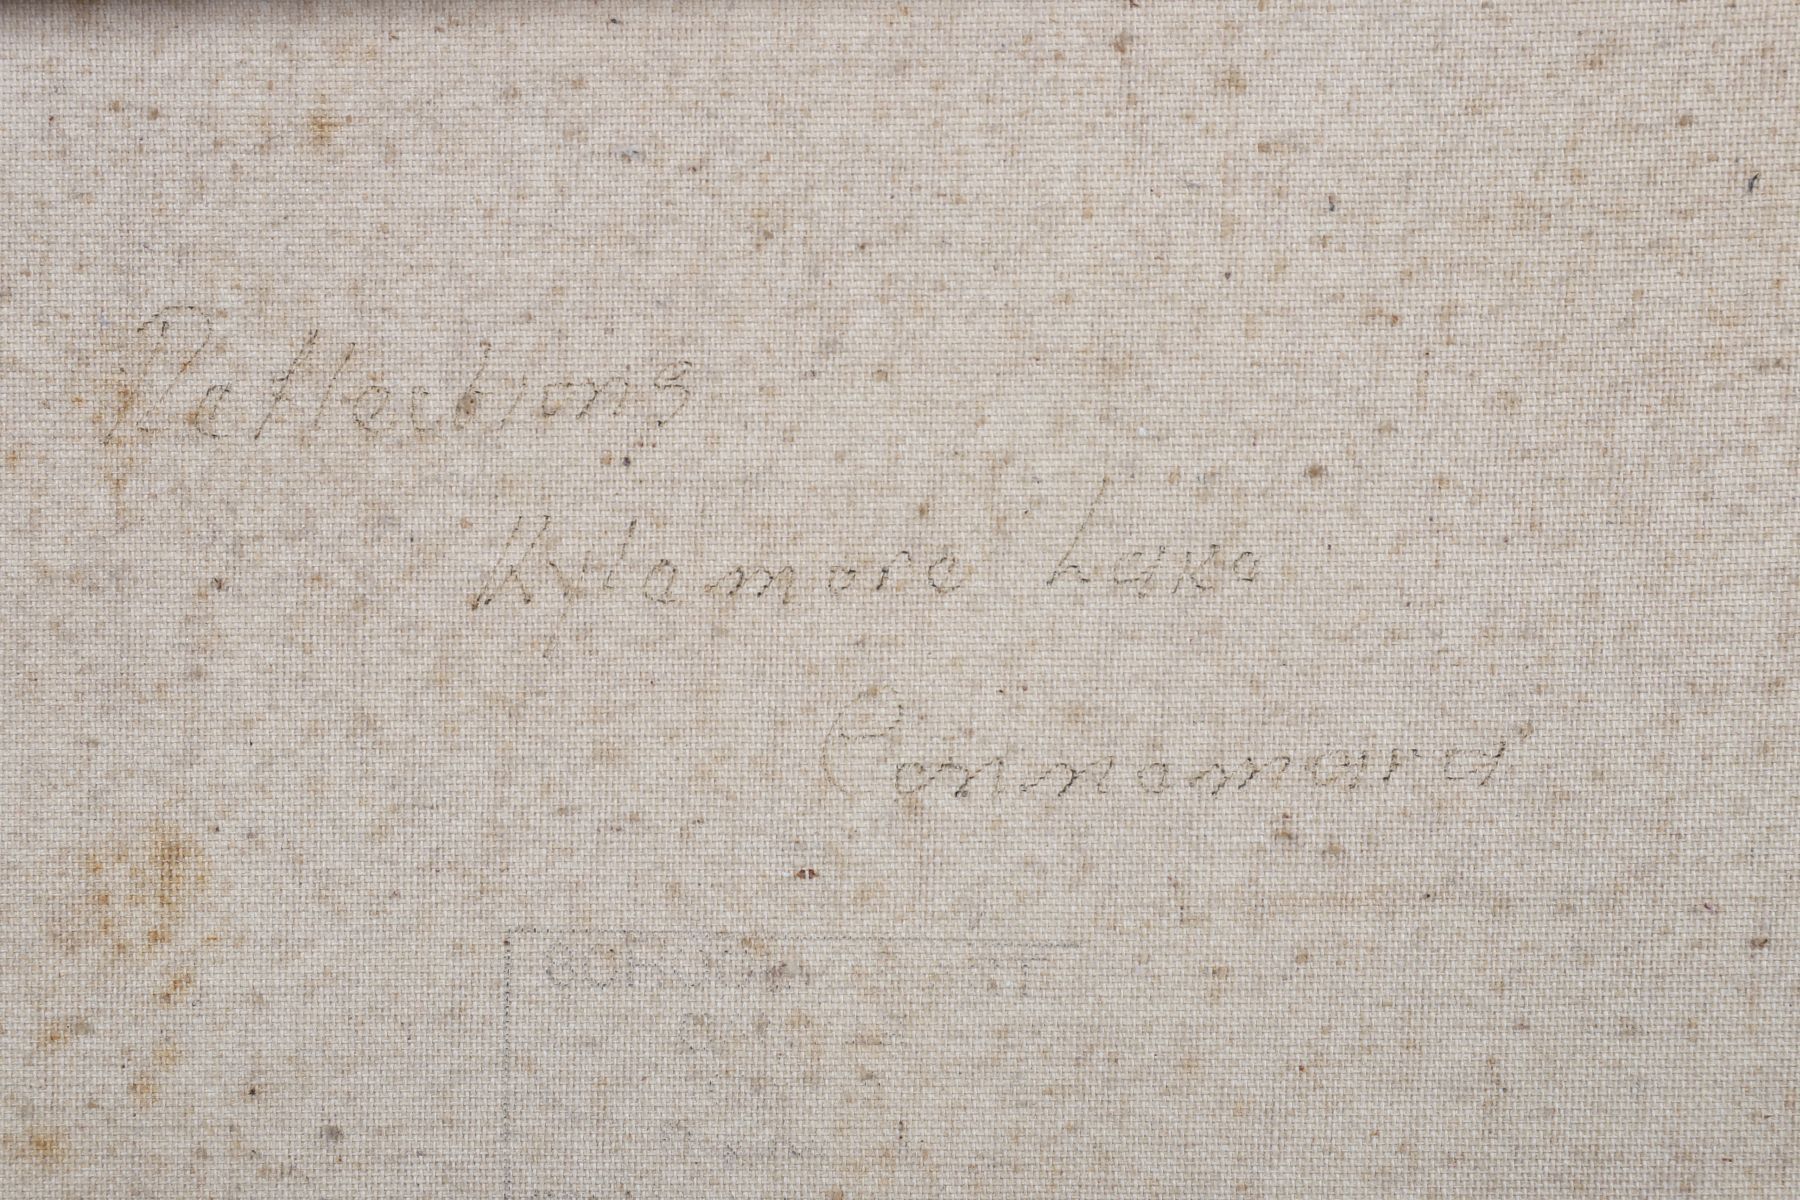 Reflections
Kylemore Lake
Connemara